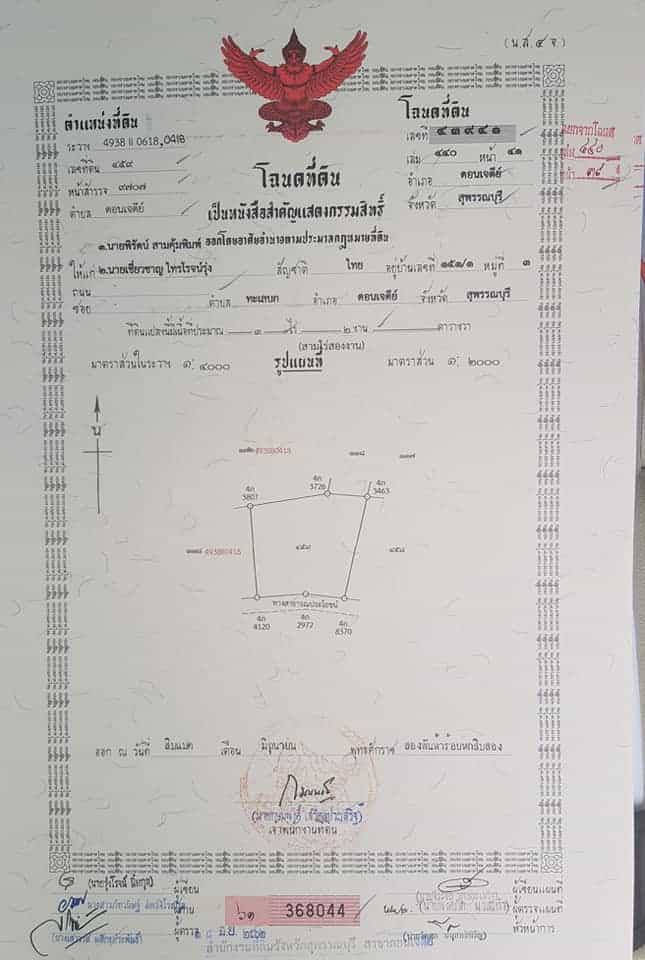 (น.ส.๔ จ)
ตำแหน่งที่ดิน
โฉนดที่ดิน
ระวาง 4938 II 0618,0418
เลขที่ ๔๓๙๔๑
เลขที่ดิน ๔๕๙
เล่ม ๔๔๐ หน้า ๔๑
หน้าสำรวจ ๙๗๐๗
อำเภอ ดอนเจดีย์
ตำบล ดอนเจดีย์
จังหวัด สุพรรณบุรี
โฉนดที่ดิน
เป็นหนังสือสำคัญแสดงกรรมสิทธิ์
๑.นายพิรัตน์ สามคุ้มพิมพ์ ออกโดยอาศัยอำนาจตามประมวลกฎหมายที่ดิน
ให้แก่ ๒.นายเชี่ยวชาญ ไพรโรจน์รุ่ง สัญชาติ ไทย อยู่บ้านเลขที่ ๑๕๑/๑ หมู่ที่ ๓
ถนน
ซอย ตำบล ทะเลบก อำเภอ ดอนเจดีย์ จังหวัด สุพรรณบุรี
ที่ดินแปลงนี้มีเนื้อที่ประมาณ ๓ ไร่ ๒ งาน ตารางวา
(สามไร่สองงาน)
มาตราส่วนในระวาง ๑: ๔๐๐๐ รูปแผนที่ มาตราส่วน ๑: ๒๐๐๐
น
4ก 3801
4ก 3726
4ก 3463
๔๕๙
๔๕๘
ทางสาธารณประโยชน์
4ก 4120
4ก 2972
4ก 8370
ออก ณ วันที่ สิบแปด เดือน มิถุนายน พุทธศักราช สองพันห้าร้อยหกสิบสอง
เจ้าพนักงานที่ดิน
ผู้เขียน
ผู้เขียนแผนที่
ผู้ทาน
ผู้ตรวจแผนที่
ผู้ตรวจ
หัวหน้าการ
๖๑ 368044
๑๘ มิ.ย. ๒๕๖๒
สำนักงานที่ดินจังหวัดสุพรรณบุรี สาขาดอนเจดีย์